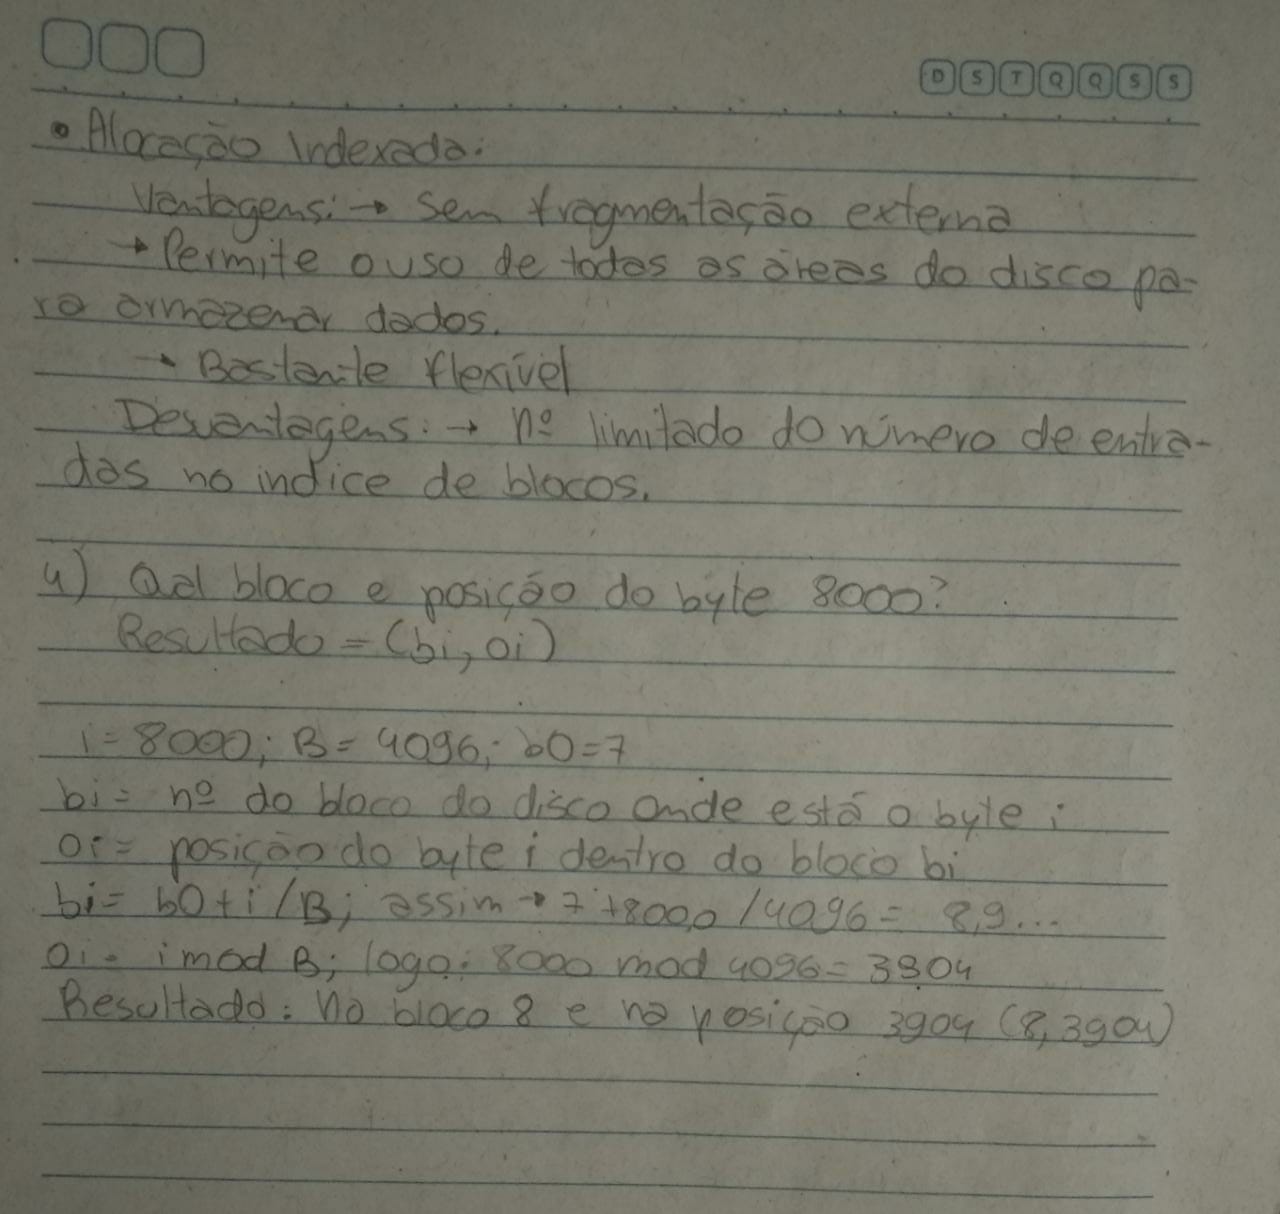 D S T Q Q S S
• Alocação Indexada:
Vantagens: → Sem fragmentação externa
→ Permite o uso de todas as áreas do disco pa-
ra armazenar dados.
→ Bastante flexível
Desvantagens: → nº limitado do número de entra-
das no indice de blocos.
4) Qual bloco e posição do byte 8000?
Resultado = (bi, oi)
i = 8000; B = 4096; b0 = 7
bi = nº do bloco do disco onde está o byte i
oi = posição do byte i dentro do bloco bi
bi = b0 + i / B; assim → 7 + 8000 / 4096 = 8,9...
oi = i mod B; logo: 8000 mod 4096 = 3904
Resultado: No bloco 8 e na posição 3904 (8, 3904)